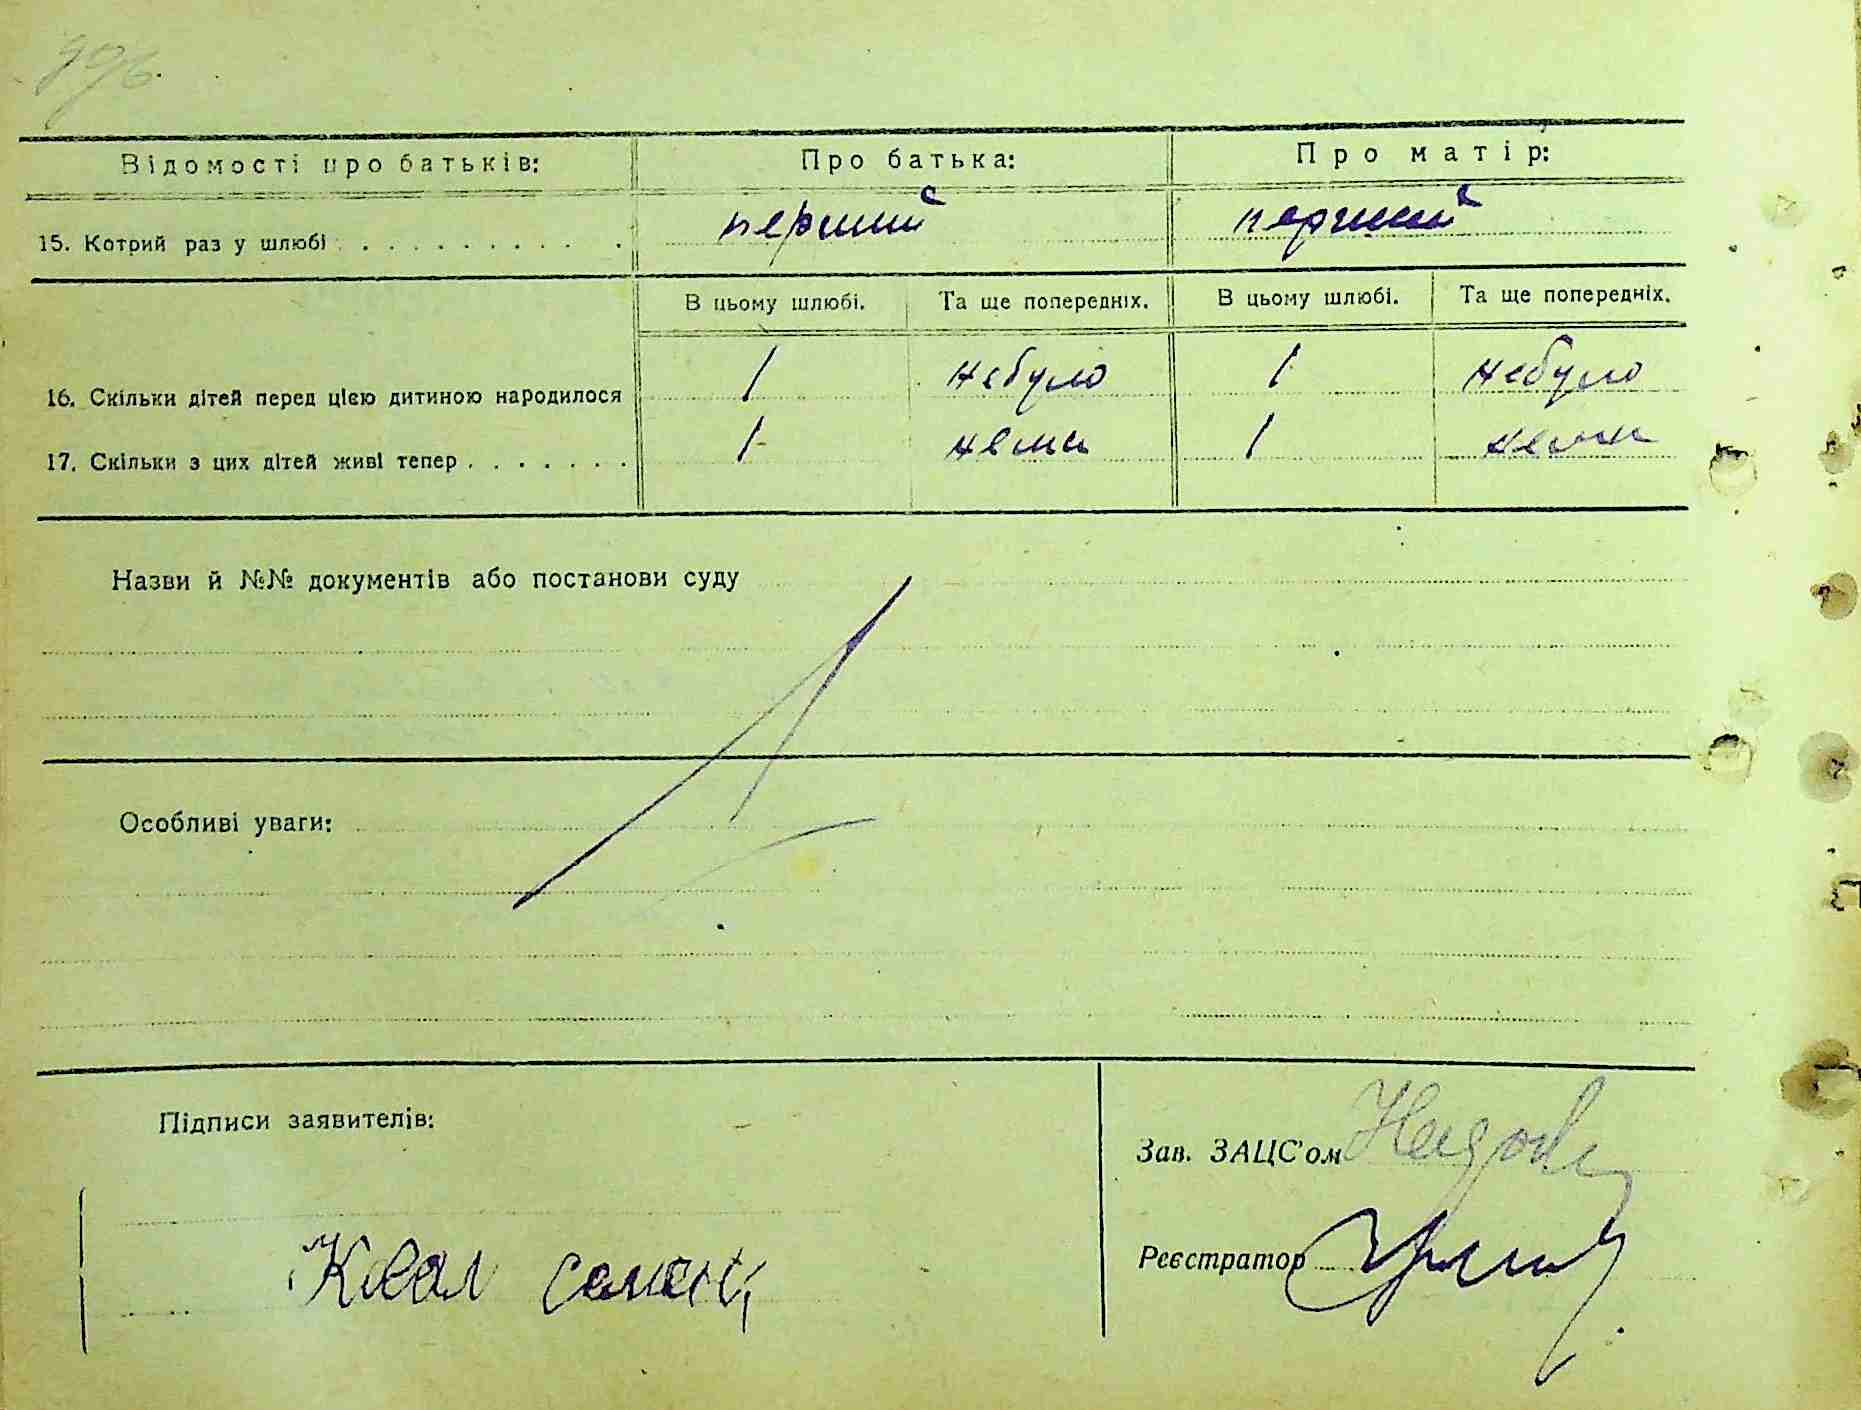 Відомості про батьків: Про батька: Про матір:
15. Котрий раз у шлюбі . . . . . . . . . . перший перший
В цьому шлюбі. Та ще попередніх. В цьому шлюбі. Та ще попередніх.
16. Скільки дітей перед цією дитиною народилося 1 небуло 1 небуло
17. Скільки з цих дітей живі тепер . . . . . . . 1 нема 1 нема
Назви й №№ документів або постанови суду
Особливі уваги:
Підписи заявителів:
Зав. ЗАЦС'ом
Реєстратор